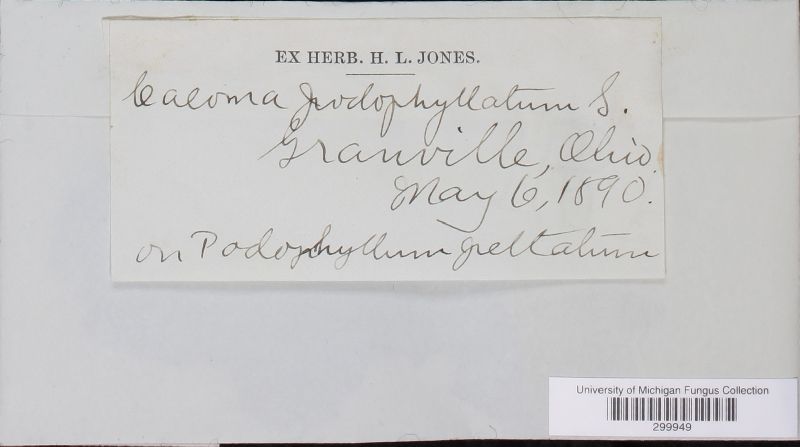 EX HERB. H. L. JONES.
Caeoma podophyllatum S.
Granville, Ohio.
May 6, 1890.
on Podophyllum peltatum
University of Michigan Fungus Collection
299949